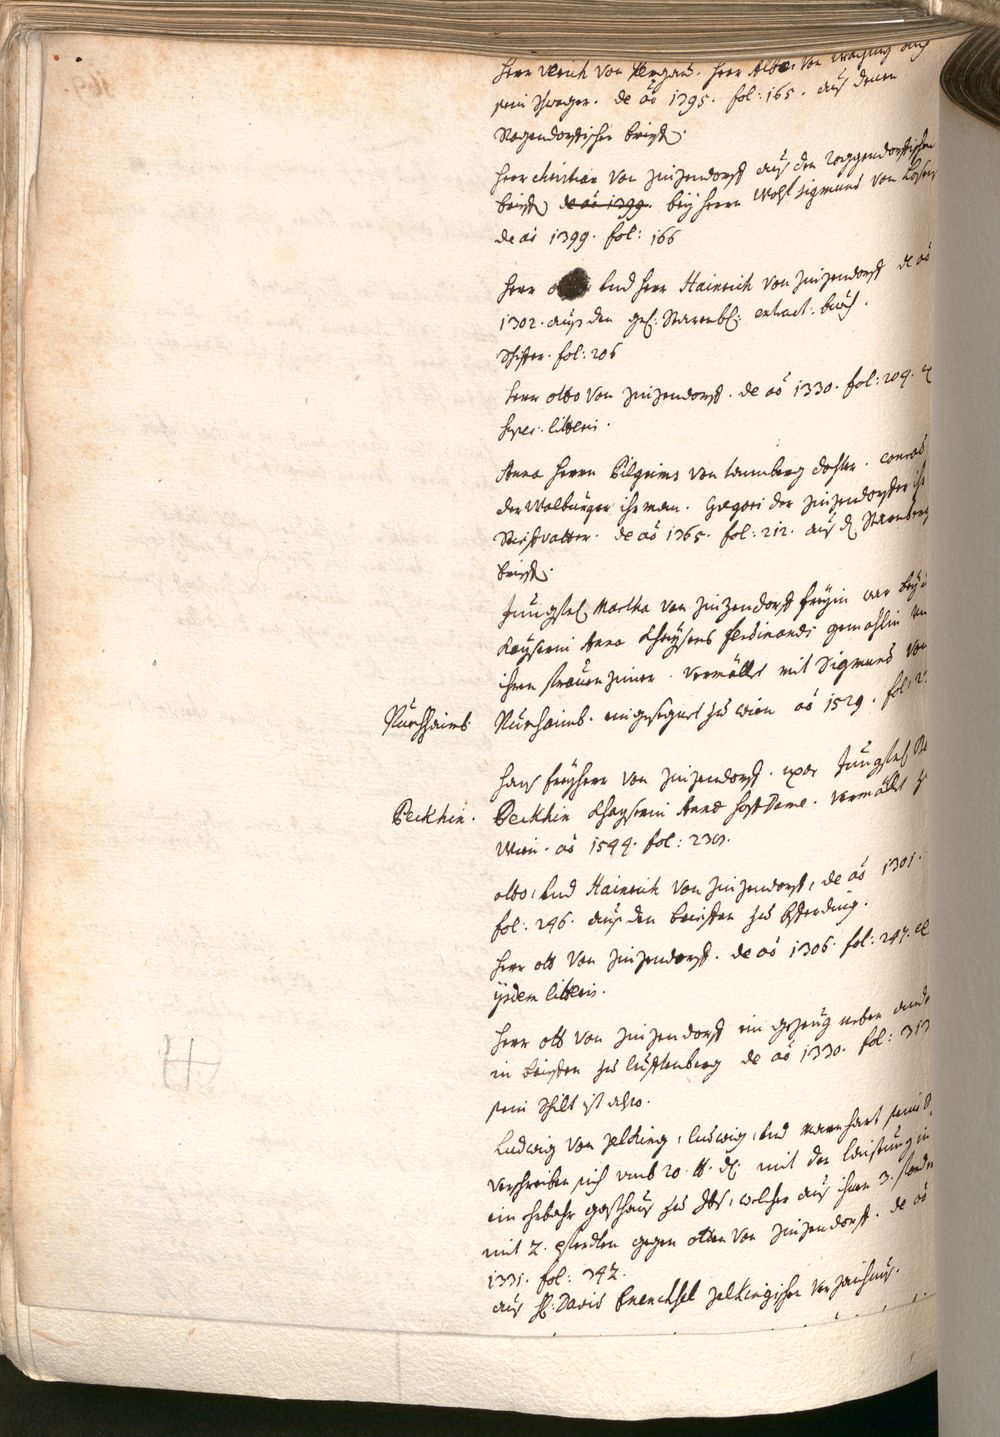 Herr Ulrich von Pergaw. Herr Albr. von
sein Schwager. de ao 1395. fol: 165. auß denen
Rogendorffischen brieff.
Herr Christian von Zinzendorff auß den Roggendorffischen
brieff de ao 1399. bey Herrn Wolf Sigmund von
de ao 1399. fol: 166
Herr und Herr Hainrich von Zinzendorff de ao
1302. auß den gfl: Starenbl: extract. buch.
Schifter. fol: 206
Herr Otto von Zinzendorff. de ao 1330. fol: 209.
litteris.
Anna Herrn Pilgrims von tochter. Conrad
der Walburger ihr man. Gregori der Zinzendorffer ihr
Steiffvatter. de ao 1365. fol: 212. auß d. Starenberg
brieff.
Jungfl. Martha von Zinzendorff freyin war bey
Kayserin Anna Khaysers Ferdinandi gemahlin
ihren frauen zimer. vermählt mit Sigmund von
Nürhhaimb Nürhaimb. eingesegnet zu Wien ao 1529. fol: 2
Hans freyherr von Zinzendorff. uxor Jungfl.
Beckhin. Beckhin Khayserin Anna hoff Dame. vermählt
Wien. ao 1544. fol: 230.
Otto, und Hainrich von Zinzendorff, de ao 1301.
fol: 246. auß den brieffen zu Efferding.
Herr Ott von Zinzendorff. de ao 1306. fol: 247. ex
ijsdem litteris.
Herr Ott von Zinzendorff ein gezeug neben
in brieffen zu Lufftenberg de ao 1330. fol: 313
sein Schilt ist also.
Ludwig von Zelking, Ludwig, und Wernhart seine
verschreiben sich umb 20. lb. dl: mit der laistung in
ein erbahr gasthauß zu Ybs, welcher auß ihnen 3.
mit 2. pferdten gegen Otten von Zinzendorff. de ao
1331. fol: 342.
auß H: David Enenckhel Zelkingischer verzaichnus.